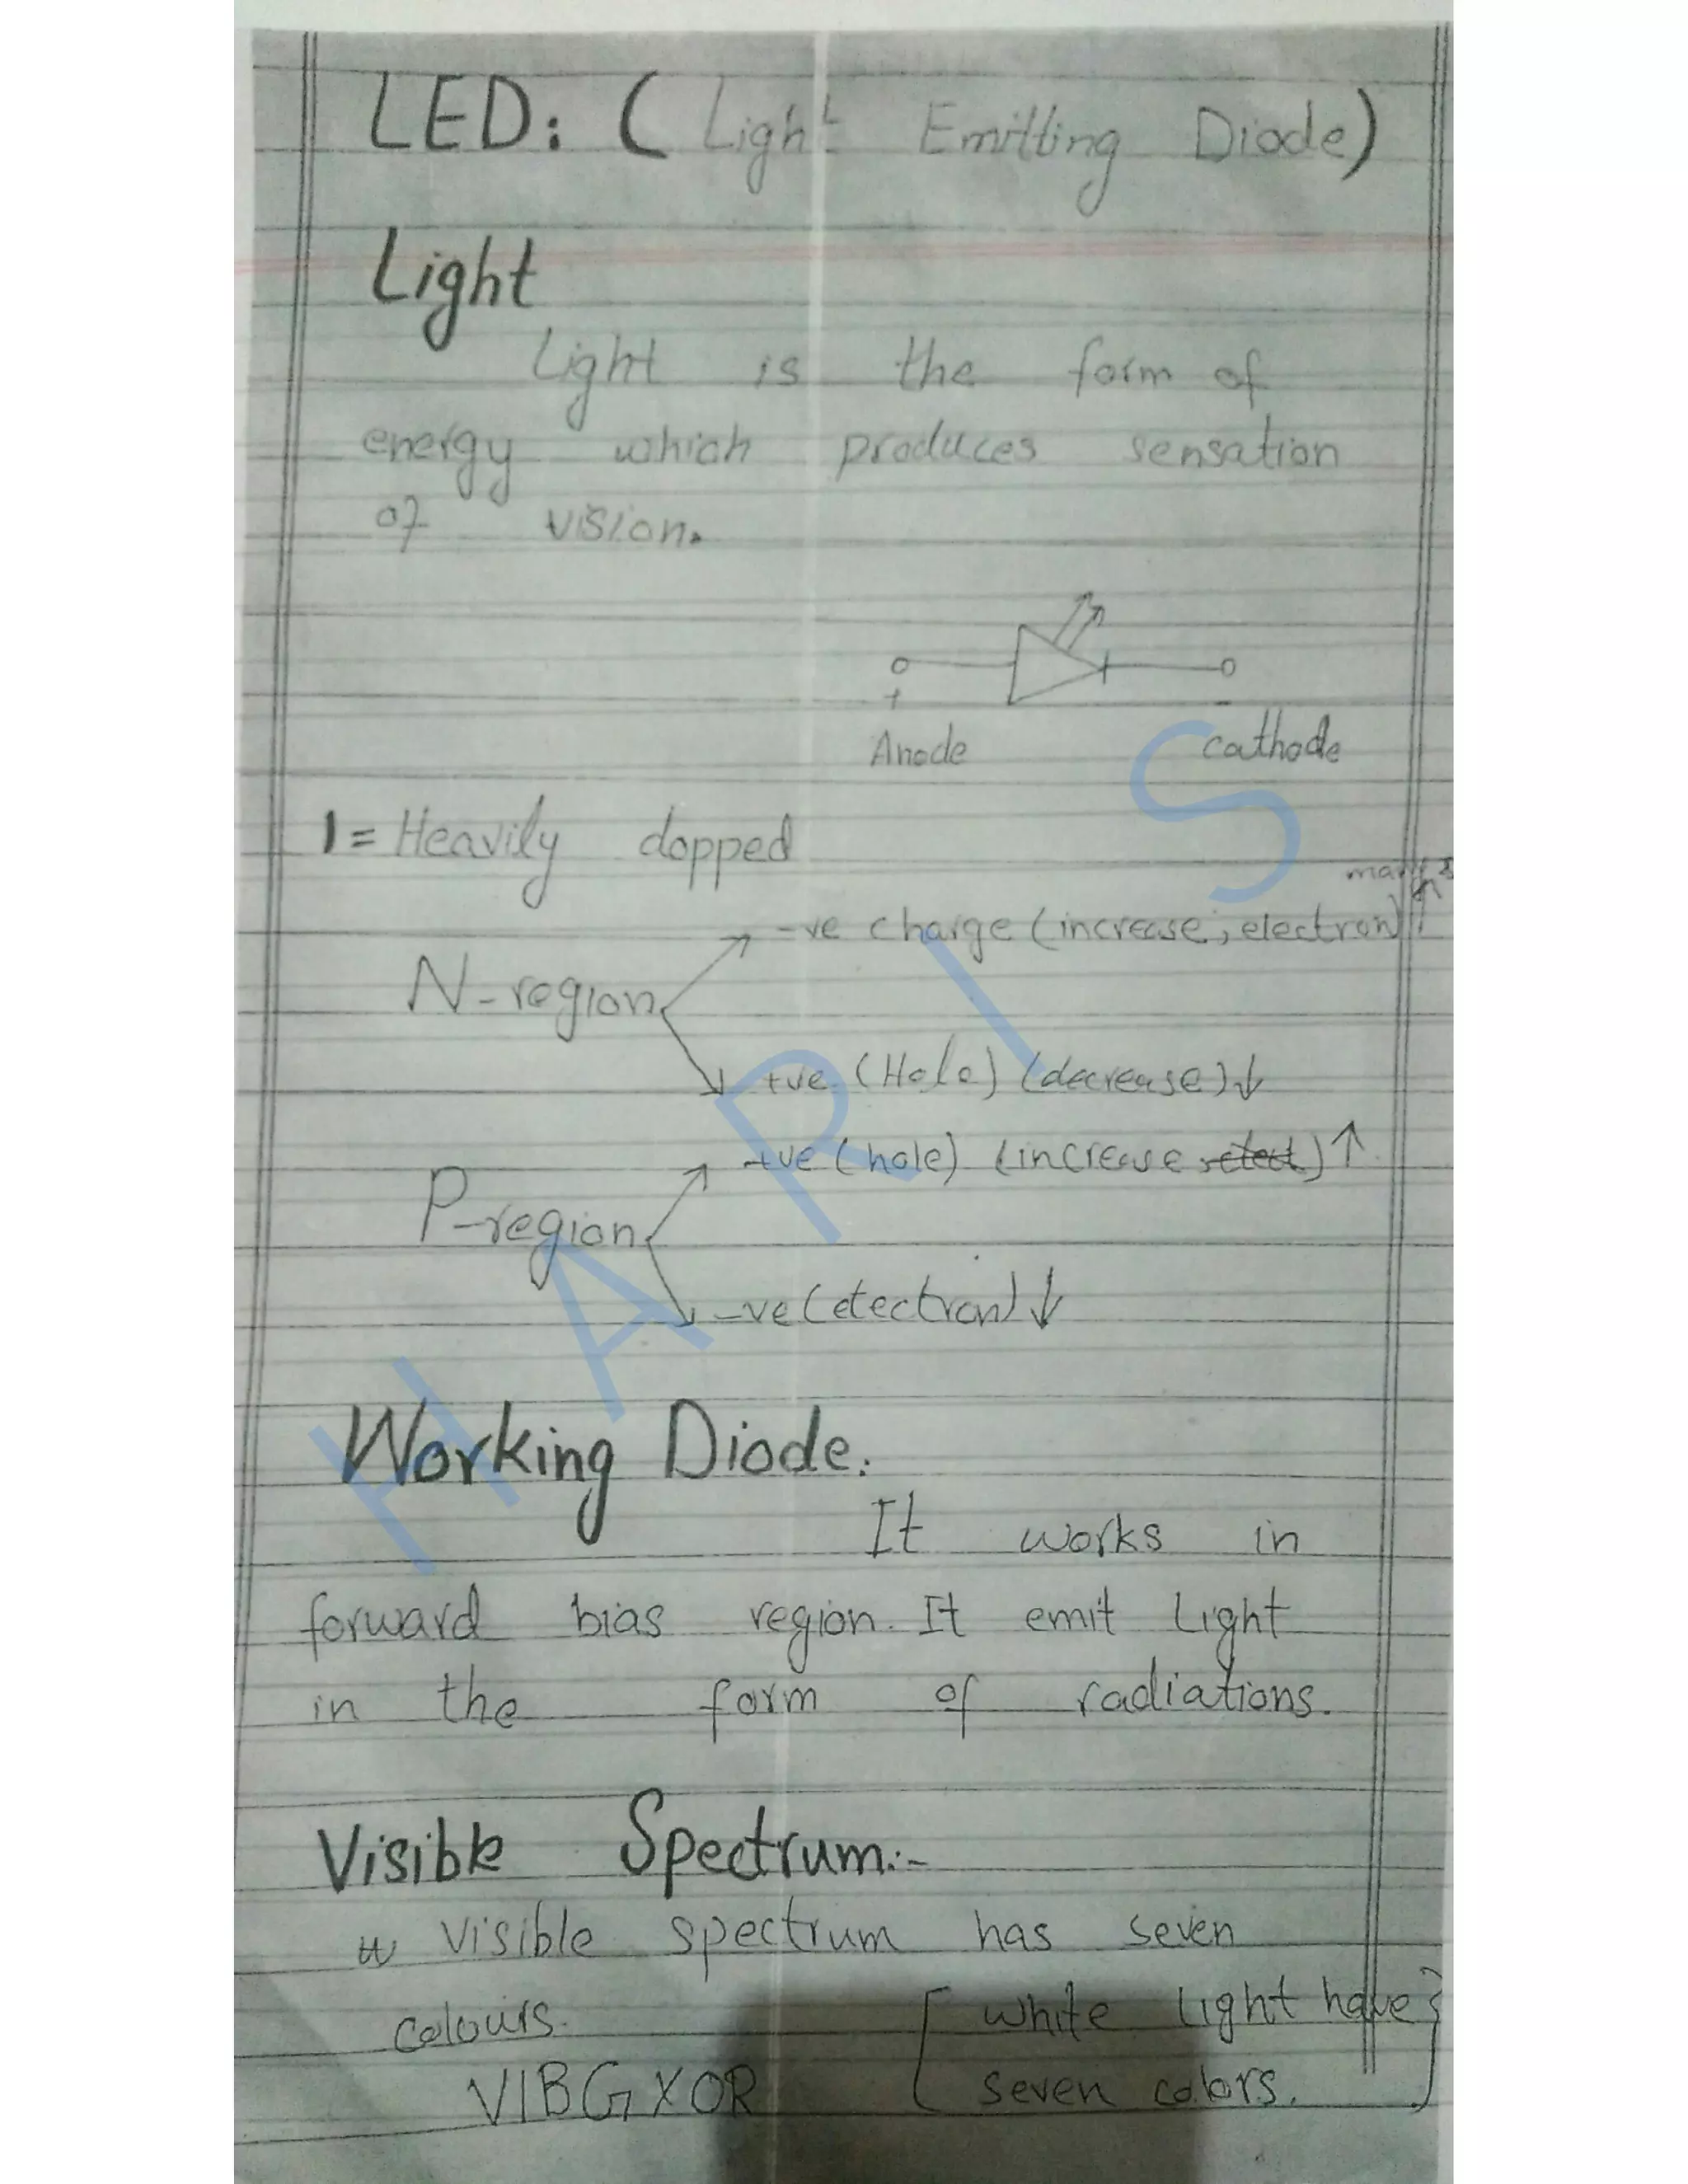 LED: (Light Emitting Diode)
Light
Light is the form of
energy which produces sensation
of vision.
+ -
Anode cathode
1= Heavily dopped
-ve charge (increase, electron) ↑
N-region
+ve (Hole) (decrease) ↓
+ve (hole) (increase) ↑
P-region
-ve (electron) ↓
Working Diode:
It works in
forward bias region. It emit Light
in the form of radiations.
Visible Spectrum:-
Visible spectrum has seven
colours. [white light have
VIBGYOR seven colors.]
HARIS